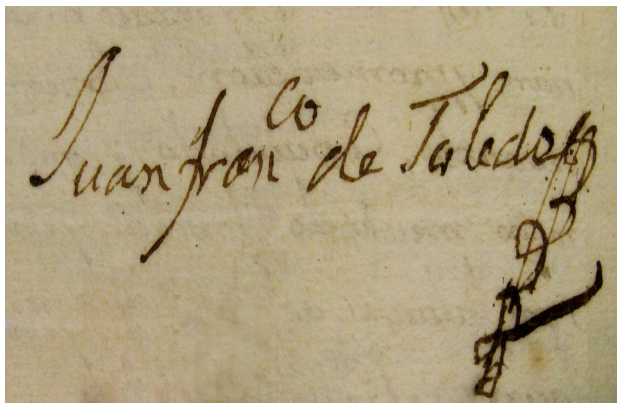 Juan fran^co de Toledo